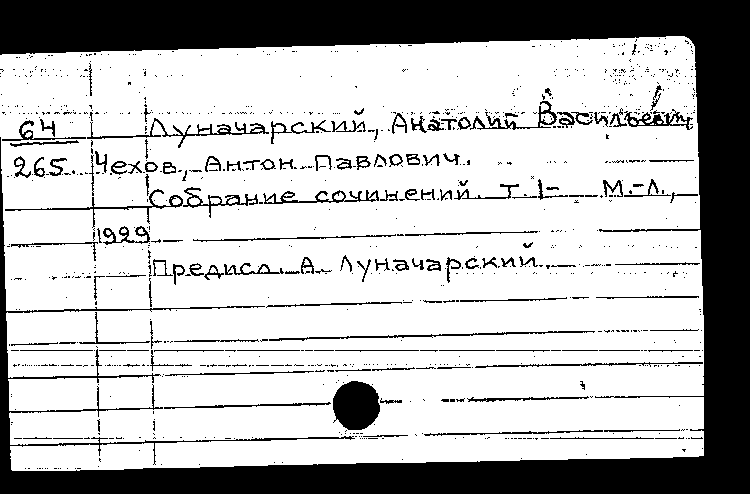 64 Луначарский, Анатолий Васильевич
265. Чехов, Антон Павлович.
Собрание сочинений. Т. 1- М.-Л.,
1929
Предисл. А. Луначарский.